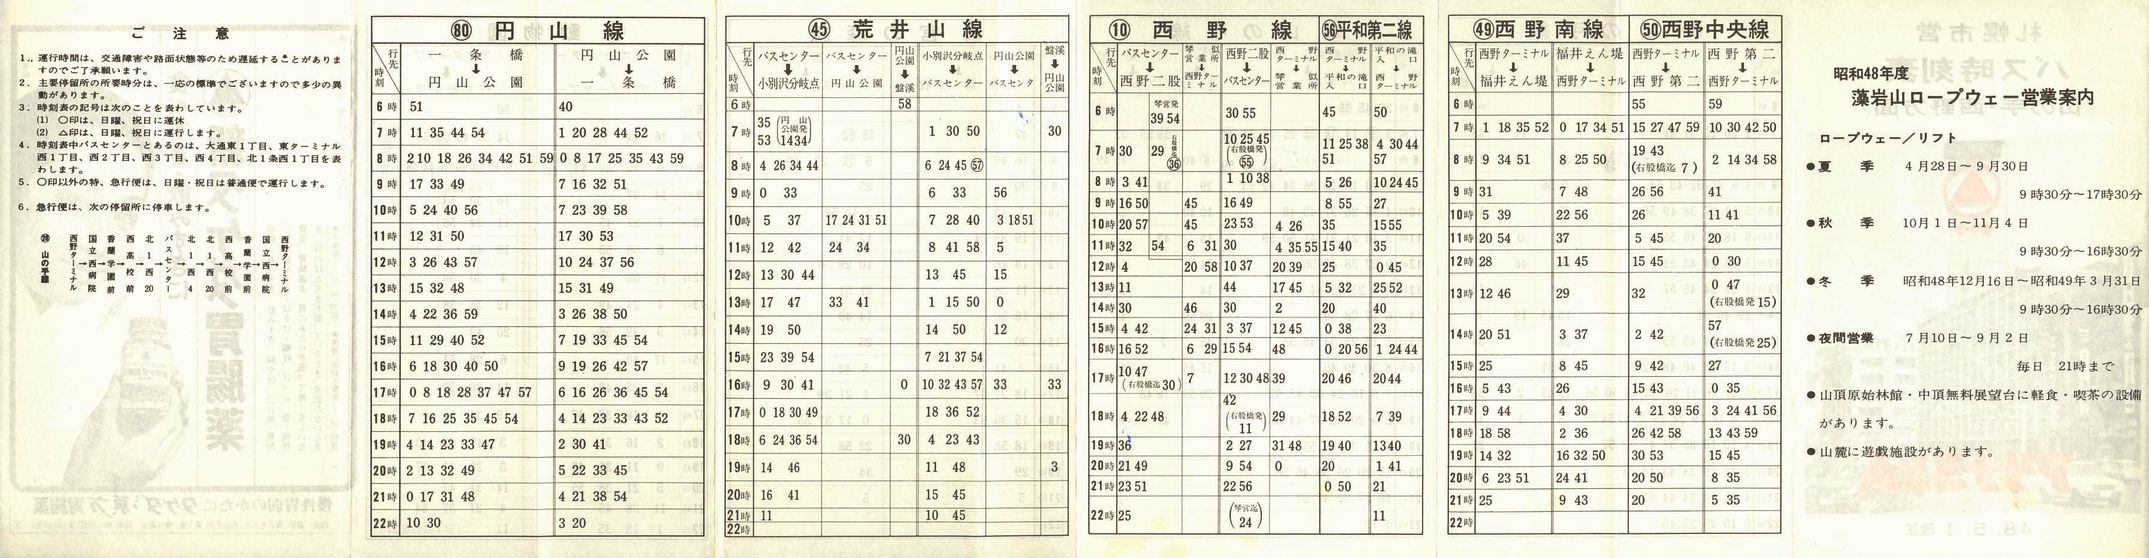 ご注意
1.. 運行時間は、交通障害や路面状態等のため遅延することがありま
すのでご了承願います。
2. 主要停留所の所要時分は、一応の標準でございますので多少の異
動があります。
3. 時刻表の記号は次のことを表わしています。
(1) 〇印は、日曜、祝日に運休
(2) △印は、日曜、祝日に運行します。
4. 時刻表中バスセンターとあるのは、大通東1丁目、東ターミナル
西1丁目、西2丁目、西3丁目、西4丁目、北1条西1丁目を表
わします。
5. 〇印以外の特、急行便は、日曜・祝日は普通便で運行します。
6. 急行便は、次の停留所に停車します。
山の手線
西野ターミナル→国立西病院→香蘭学園前→西高校前→北1西20→バスセンター→北1西4→北1西20→西高校前→香蘭学園前→国立西病院→西野ターミナル
80 円山線
行先 時刻 一条橋↓円山公園 円山公園↓一条橋
6時 51 40
7時 11 35 44 54 1 20 28 44 52
8時 2 10 18 26 34 42 51 59 0 8 17 25 35 43 59
9時 17 33 49 7 16 32 51
10時 5 24 40 56 7 23 39 58
11時 12 31 50 17 30 53
12時 3 26 43 57 10 24 37 56
13時 15 32 48 15 31 49
14時 4 22 36 59 3 26 38 50
15時 11 29 40 52 7 19 33 45 54
16時 6 18 30 40 50 9 19 26 42 57
17時 0 8 18 28 37 47 57 6 16 26 36 45 54
18時 7 16 25 35 45 54 4 14 23 33 43 52
19時 4 14 23 33 47 2 30 41
20時 2 13 32 49 5 22 33 45
21時 0 17 31 48 4 21 38 54
22時 10 30 3 20
45 荒井山線
行先 時刻 バスセンター↓小別沢分岐点 バスセンター↓円山公園 円山公園↓盤渓 小別沢分岐点↓バスセンター 円山公園↓バスセンター 盤渓↓円山公園
6時 58
7時 35 53 (円山公園発 14 34) 1 30 50 30
8時 4 26 34 44 6 24 45 57
9時 0 33 6 33 56
10時 5 37 17 24 31 51 7 28 40 3 18 51
11時 12 42 24 34 8 41 58 5
12時 13 30 44 13 45 15
13時 17 47 33 41 1 15 50 0
14時 19 50 14 50 12
15時 23 39 54 7 21 37 54
16時 9 30 41 0 10 32 43 57 33 33
17時 0 18 30 49 18 36 52
18時 6 24 36 54 30 4 23 43
19時 14 46 11 48 3
20時 16 41 15 45
21時 11 10 45
22時
10 西野線 56 平和第二線
行先 時刻 バスセンター↓西野二股 琴似営業所↓西野ターミナル 西野二股↓バスセンター 西野ターミナル↓琴似営業所 西野ターミナル↓平和の滝入口 平和の滝入口↓西野ターミナル
6時 琴営発 39 54 30 55 45 50
7時 30 29 右股橋迄 36 10 25 45 (右股橋発 55) 11 25 38 51 4 30 44 57
8時 3 41 1 10 38 5 26 10 24 45
9時 16 50 45 16 49 8 55 27
10時 20 57 45 23 53 4 26 35 15 55
11時 32 54 6 31 30 4 35 55 15 40 35
12時 4 20 58 10 37 20 39 25 0 45
13時 11 44 17 45 5 32 25 52
14時 30 46 30 2 20 40
15時 4 42 24 31 3 37 12 45 0 38 23
16時 16 52 6 29 15 54 48 0 20 56 1 24 44
17時 10 47 (右股橋迄 30) 7 12 30 48 39 20 46 20 44
18時 4 22 48 42 (右股橋発 11) 29 18 52 7 39
19時 36 2 27 31 48 19 40 13 40
20時 21 49 9 54 0 20 1 41
21時 23 51 22 56 0 50 21
22時 25 (琴営迄 24) 11
49 西野南線 50 西野中央線
行先 時刻 西野ターミナル↓福井えん堤 福井えん堤↓西野ターミナル 西野ターミナル↓西野第二 西野第二↓西野ターミナル
6時 55 59
7時 1 18 35 52 0 17 34 51 15 27 47 59 10 30 42 50
8時 9 34 51 8 25 50 19 43 (右股橋迄 7) 2 14 34 58
9時 31 7 48 26 56 41
10時 5 39 22 56 26 11 41
11時 20 54 37 5 45 20
12時 28 11 45 15 45 0 30
13時 12 46 29 32 0 47 (右股橋発 15)
14時 20 51 3 37 2 42 57 (右股橋発 25)
15時 25 8 45 9 42 27
16時 5 43 26 15 43 0 35
17時 9 44 4 30 4 21 39 56 3 24 41 56
18時 18 58 2 36 26 42 58 13 43 59
19時 14 32 16 32 50 30 53 15 45
20時 6 23 51 24 41 20 50 8 35
21時 25 9 43 20 5 35
22時
昭和48年度
藻岩山ロープウェー営業案内
ロープウェー/リフト
●夏季 4月28日～9月30日
9時30分～17時30分
●秋季 10月1日～11月4日
9時30分～16時30分
●冬季 昭和48年12月16日～昭和49年3月31日
9時30分～16時30分
●夜間営業 7月10日～9月2日
毎日 21時まで
●山頂原始林館・中頂無料展望台に軽食・喫茶の設備
があります。
●山麓に遊戯施設があります。